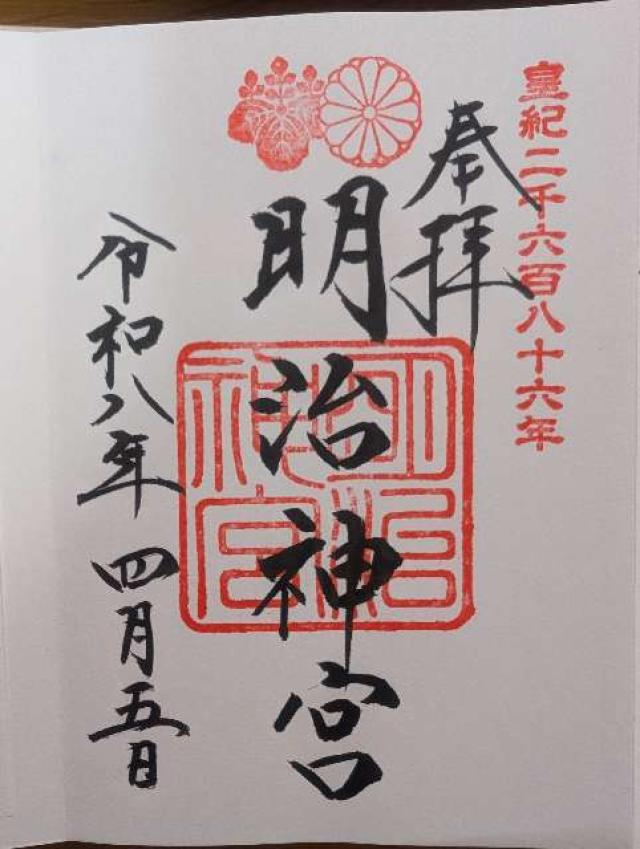 皇紀二千六百八十六年
奉拝
明治神宮
明治神宮
令和八年四月五日